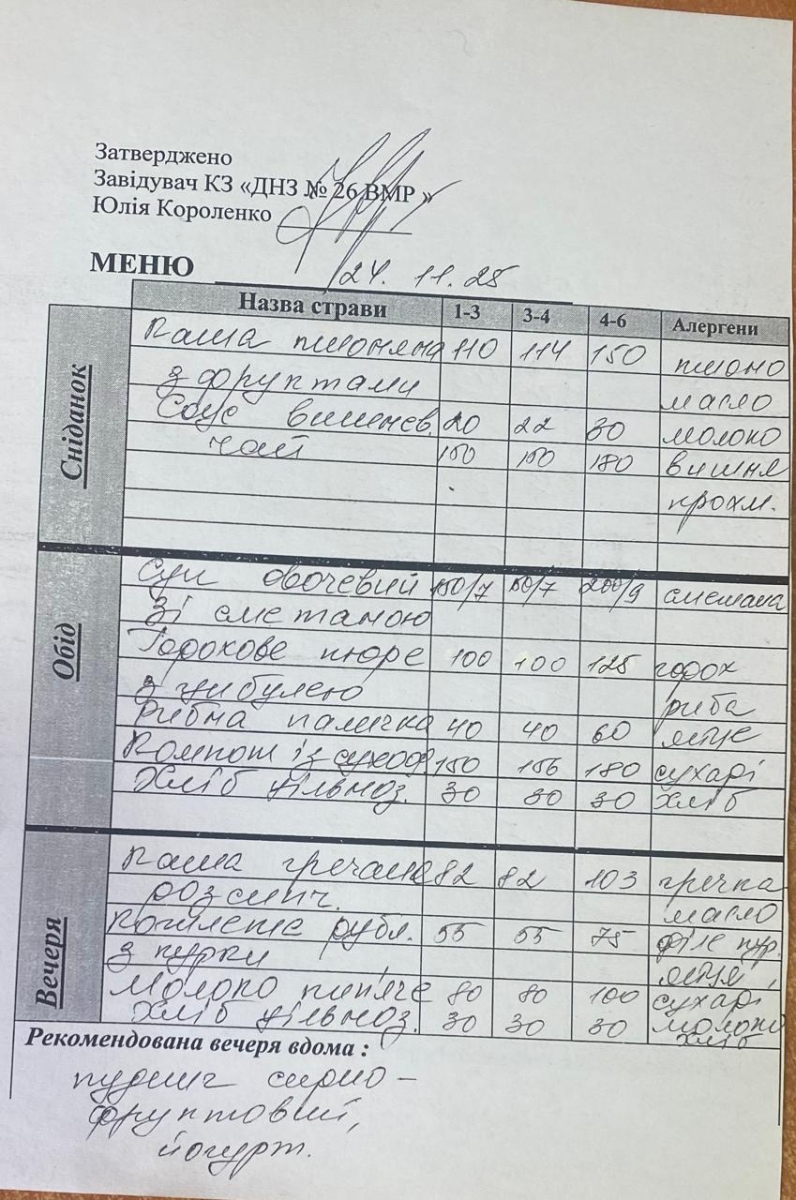 Затверджено
Завідувач КЗ «ДНЗ № 26 ВМР »
Юлія Короленко
МЕНЮ 24. 11. 25
Назва страви 1-3 3-4 4-6 Алергени
Сніданок
Каша пшоняна 110 114 150 пшоно
з фруктами масло
Соус вишнев. 20 22 30 молоко
чай 150 150 180 вишня
крохм.
Обід
Суп овочевий 150/7 150/7 200/9 сметана
зі сметаною
Горохове пюре 100 100 125 горох
з цибулею риба
Рибна паличка 40 40 60 яйце
Компот із сухоф. 150 156 180 сухарі
Хліб цільноз. 30 30 30 хліб
Вечеря
Каша гречана 82 82 103 гречка
розсипч. масло
Котлета рубл. 55 55 75 філе кур.
з курки яйця,
Молоко кип'яче 80 80 100 сухарі
Хліб цільноз. 30 30 30 молоко
хліб
Рекомендована вечеря вдома :
пудинг сирно -
фруктовий,
йогурт.